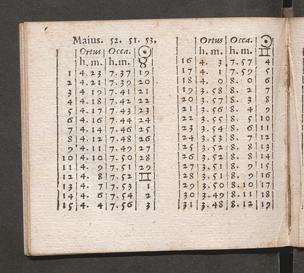 Maius. 52. 51. 53.
Ortus Occa. ☉
h. m. h. m. ♉
1 4. 23 7. 37 19
2 4. 21 7. 39 20
3 4. 19 7. 41 21
4 4. 18 7. 42 22
5 4. 17 7. 43
6 4. 16 7. 44
7 4. 14 7. 46 25
8 4. 12 7. 48 26
9 4. 11 7. 49 27
10 4. 10 7. 50 28
11 4. 9 7. 51 29
12 4. 8 7. 52 ♊
13 4. 7 7. 53 1
14 4. 6 7. 54 2
15 4. 4 7. 56 3
Ortus Occa. ☉
h. m. h. m. ♊
16 4. 3 7. 57 4
17 4. 1 7. 59 5
18 4. 0 8. 0 6
19 3. 58 8. 2 7
20 3. 57 8. 3 8
21 3. 56 8. 4 9
22 3. 55 8. 5
23 3. 54 8. 6 11
24 3. 53 8. 7 12
25 3. 52 8. 8 13
26 3. 52 8. 8 14
27 3. 51 8. 9 15
28 3. 51 8. 9 16
29 3. 50 8. 10 17
30 3. 49 8. 11 18
31 3. 48 8. 12 19